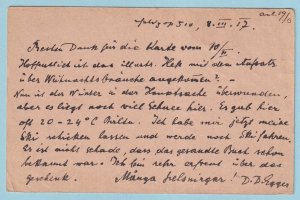 8.III.17.
Besten Dank für die Karte vom 10/II.
Hoffentlich ist das illustr. Heft mit dem Aufsatz
über Weihnachtsbräuche angekommen? –
Nun ist der Winter in der Hauptsache überwunden,
aber es liegt noch viel Schnee hier. Es gab hier
oft 20–24°C Kälte. Ich habe mir jetzt meine
Ski schicken lassen und werde noch Ski fahren.
Es ist nicht schade, dass das gesandte Buch schon
bekannt war. Ich bin sehr erfreut über das
Geschenk. Många helsningar! D. D. Egges